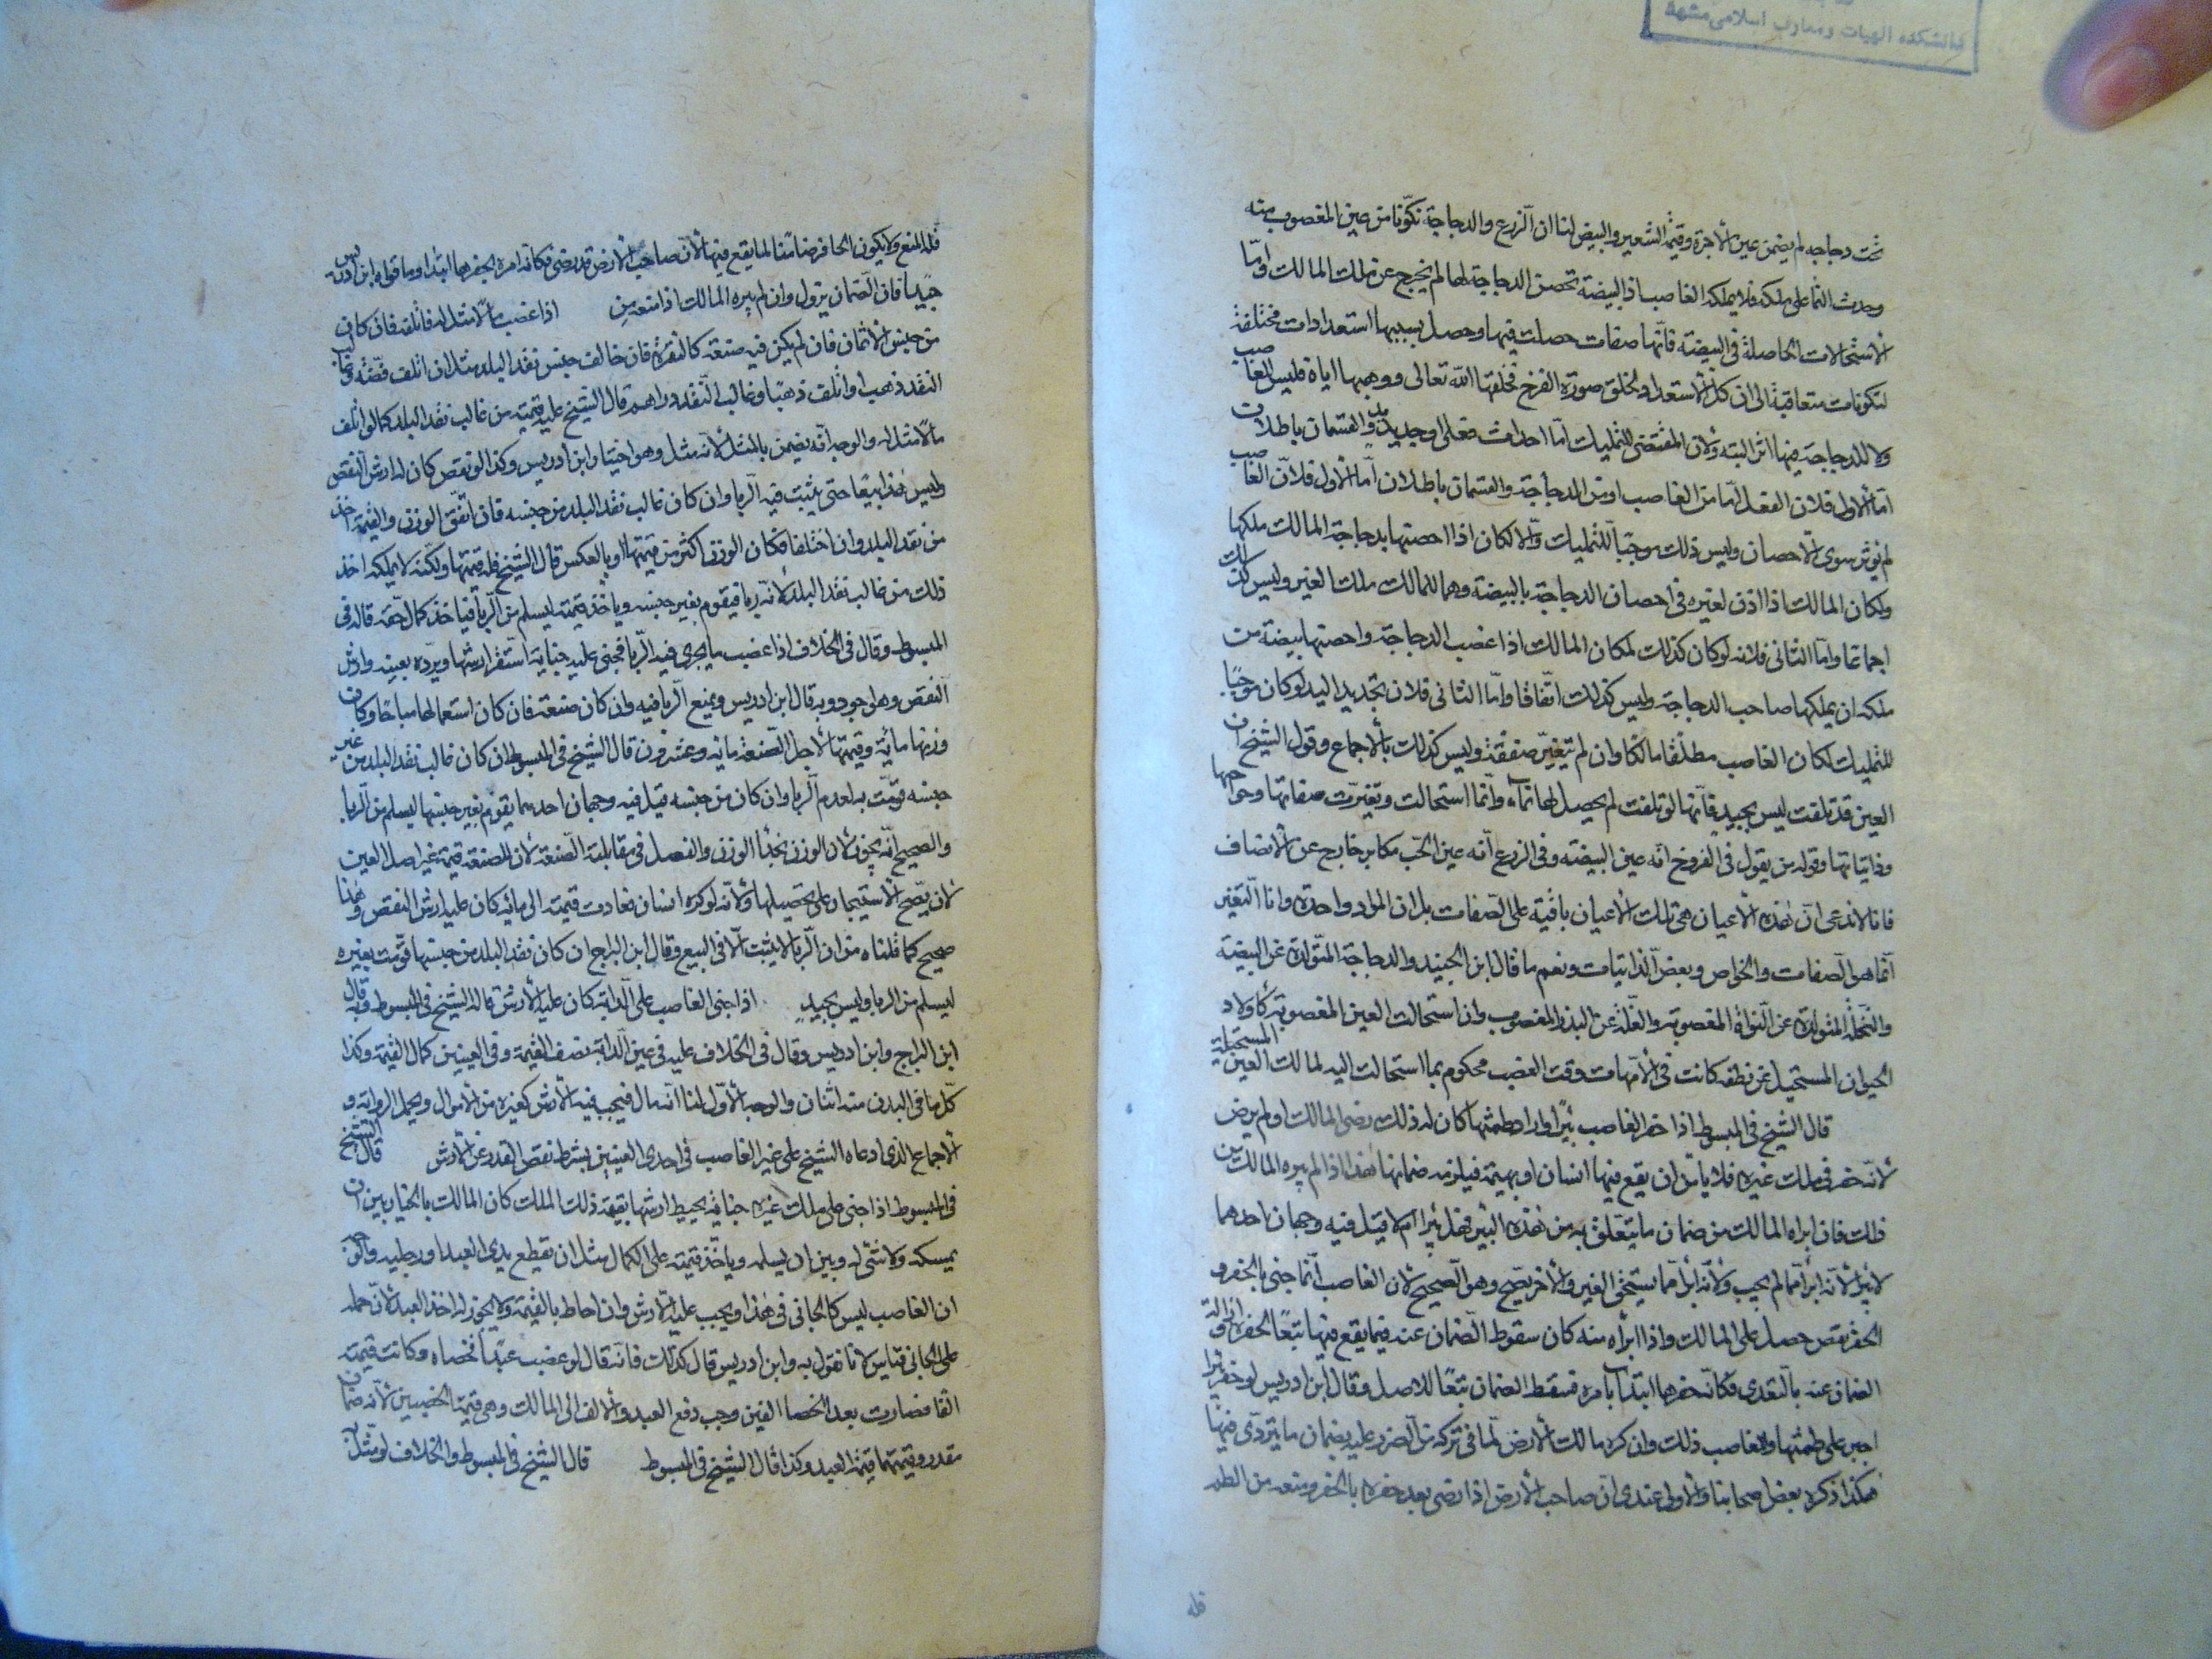 دانشکده الهیات ومعارف اسلامی مشهد
تحت دجاجه لم يضمن عين الاجرة وقيمة الشعير والبيض لنا ان الزرع والدجاجة تكونا من عين المغصوب منه
وحدث النما على ملكه فلا يملكه الغاصب اذ البيضة تحضن الدجاجة لها لم يخرج عن ملك المالك اوما
الاستحالات الحاصلة فى البيضة فانها صفات حصلت فيها وحصل بسببها استعدادات مختلفة
لتكونات متعاقبة الى ان كمل الاستعداد لخلق صورة الفرخ فخلقها الله تعالى ووهبها اياه فليس للغاصب
ولا للدجاجة فيها اثر البته ولان المقتضى للتمليك اما احداث فعل او جديد يد والقسمان باطلان
اما الاول فلان الفعل اما من الغاصب او من الدجاجة والقسمان باطلان اما الاول فلان الغاصب
لم يؤثر سوى الاحضان وليس ذلك موجبا للتمليك والا لكان اذا احضنها بدجاجة المالك ملكها
ولكان المالك اذا اذن لغيره فى احضان الدجاجة بالبيضة وهما للمالك ملك الغير وليس كذلك
اجماعا واما الثانى فلانه لو كان كذلك لمكان المالك اذا غصب الدجاجة واحضنها بيضة من
ملكه ان يملكها صاحب الدجاجة وليس كذلك اتفاقا واما الثانى فلان تجديد اليد لو كان موجبا
للتمليك لكان الغاصب مطلقا مالكا وان لم تتغير صفته وليس كذلك بالاجماع وقول الشيخ ان
العين قد تلفت ليس بجيد فانها لو تلفت لم يحصل لها نماء وانما استحالت وتغيرت صفاتها وخواصها
وذاتياتها وقوله من يقول فى الفروخ انه عين البيضة وفى الزرع انه عين الحب مكابر خارج عن الانصاف
فانا لا ندعى ان هذه الاعيان هى تلك الاعيان باقية على الصفات بل ان المواد واحدة وانا التغير
انما هو الصفات والخواص وبعض الذاتيات ونعم ما قال ابن الجنيد والدجاجة المتولدة عن البيضة
والنخلة المتولدة عن النواة المغصوبة والغلة عن البذر المغصوب وان استحالت العين المغصوبة كاولاد
الحيوان المستحيل عن نطفه كانت فى الامهات وقت الغصب محكوم بما استحالت اليه لمالك العين المستحيلة
قال الشيخ فى المبسوط اذا حفر الغاصب بئرا واراد طمثها كان له ذلك رضى المالك او لم يرض
لانه حفر فى ملك غيره فلا يامن ان يقع فيها انسان او بهيمة فيلزمه ضمانها هذا اذا لم يبره المالك من
ذلك فان ابراه المالك من ضمان ما يتعلق به من هذه البئر فهل يبرا ام لا قيل فيه وجهان احدهما
لا يبرا لانه ابرا مما لم يجب ولانه ابرا مما يستحق الغير والاخر يصح وهو الصحيح لان الغاصب انما جنى بالحفر و
الحفر نقص حصل على المالك واذا ابراه منه كان سقوط الضمان عنه فيما يقع فيها تبعا للحفر وازالة
الضمان عنه بالتعدى فكانه حفرها ابتداء بامره فسقط الضمان تبعا للاصل وقال ابن ادريس لو حفر بئرا
اجبر على طمثها وللغاصب ذلك وان كره مالك الارض لما فى تركه من الضرر عليه بضمان ما يتردى فيها
هكذا ذكره بعض اصحابنا والاولى عندى ان صاحب الارض اذا رضى بعد حفره بالحفر ومنعه من الطم
فله
فله المنع ولا يكون الحافر ضامنا لما يقع فيها لان صاحب الارض قد رضى فكانه امره بحفرها ابتدا وما قواه ابن ادريس
جيد فان الضمان يزول وان لم يبره المالك اذا منعه من اذا غصب مالا مثل له فاتلفه فان كان
من جنس الاثمان فان لم يكن فيه صنعة كالنقرة فان خالف جنس نقد البلد مثل ان اتلف فضة وغالب
النقد ذهب او اتلف ذهبا وغالب النقد دراهم قال الشيخ عليه قيمته من غالب نقد البلد كما لو اتلف
مالا مثل له والوجه انه يضمن بالمثل لانه مثل وهو اختيار ابن ادريس وكذا لو نقص كان له ارش النقص
وليس هذا بيعا حتى يثبت فيه الربا وان كان غالب نقد البلد من جنسه فان اتفق الوزن والقيمة اخذ
من نقد البلد وان اختلفا فكان الوزن اكثر من قيمتها او بالعكس قال الشيخ فله قيمتها ولكنه لا يملكه اخذ
ذلك من غالب نقد البلد لانه ربا فيقوم بغير جنسه وياخذ قيمته ليسلم من الربا فياخذ كمال حقه قاله فى
المبسوط وقال فى الخلاف اذا غصب ما يجرى فيه الربا فجنى عليه جناية استقر ارشها ويرده بعينه وارش
النقص وهو اجود وبه قال ابن ادريس ويمنع الربا فيه وان كان صنعة فان كان استعمالها مباحا وكان
وزنها مائة وقيمتها لاجل الصنعة مائة وعشرون قال الشيخ فى المبسوط ان كان غالب نقد البلد من غير
جنسه قومت به لعدم الربا وان كان من جنسه قيل فيه وجهان احدهما يقوم بغير جنسها ليسلم من الربا
والصحيح انه يجوز لان الوزن بحذاء الوزن والفضل فى مقابلة الصنعة لان للصنعة قيمة غير اصل العين
لان يصح الاستيجار على تحصيلها ولانه لو كسره انسان فعادت قيمته الى مائة كان عليه ارش النقص وهذا
صحيح كما قلناه من ان الربا لا يثبت الا فى البيع وقال ابن البراج ان كان نقد البلد من جنسها قومت بغيره
ليسلم من الربا وليس بجيد اذا جنى الغاصب على الدابة كان عليه الارش قاله الشيخ فى المبسوط وبه قال
ابن البراج وابن ادريس وقال فى الخلاف عليه فى عين الدابة نصف القيمة وفى العينين كمال القيمة وكذا
كل ما فى البدن منه اثنان والوجه الاول لنا انه مال فيجب فيه الارش كغيره من الاموال ويحمل الرواية و
الاجماع الذى ادعاه الشيخ على غير الغاصب فى احدى العينين بشرط نقص القدر عن الارش قال الشيخ
فى المبسوط اذا جنى على ملك غيره جناية يحيط ارشها بقيمة ذلك الملك كان المالك بالخيار بين ان
يمسكه ولا شئ له وبين ان يسلمه وياخذ قيمته على الكمال مثل ان يقطع يدى العبد او رجليه والحق
ان الغاصب ليس كالجانى فى هذا ويجب عليه الارش وان احاط بالقيمة ولا يجوز له اخذ العبد لان حمله
على الجانى قياس لا نقول به وابن ادريس قال كذلك فانه قال لو غصب عبدا فخصاه وكانت قيمته
الفا فصارت بعد الخصا الفين وجب دفع العبد والالف الى المالك وهى قيمة الخصيين لانه ضمان
مقدر وقيمتهما قيمة العبد وكذا قال الشيخ فى المبسوط قال الشيخ فى المبسوط والخلاف لو مثل